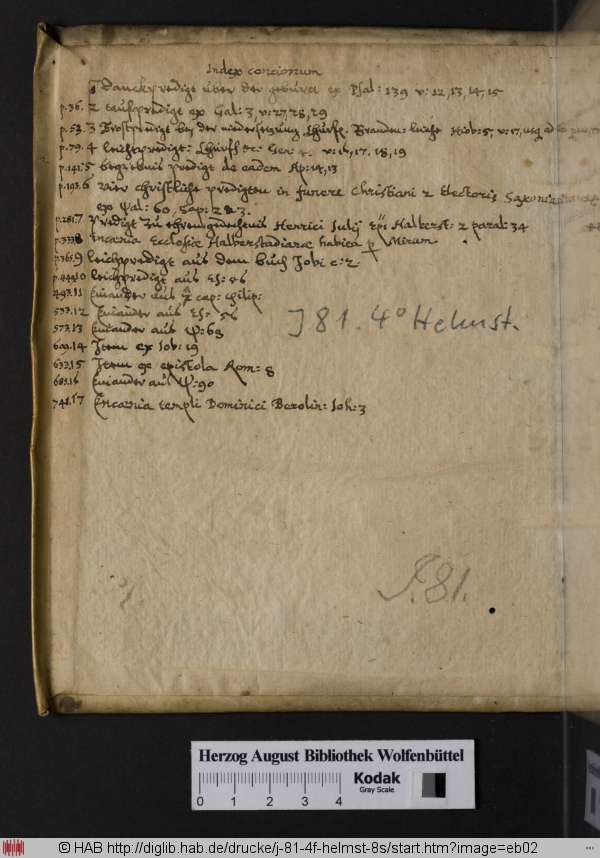 Index concionum
1 Danckpredigt über der geburt ex Psal: 139 v: 12, 13, 14, 15
p.36. 2 taufpredigt ex Gal: 3, v: 27, 28, 29
p.53. 3 bey der Branden: Hiob: 5, v: 17,
p.79. 4 leichpredigt: v: 16, 17, 18, 19
p.141. 5 begrebnis predigt de eadem Ap: 14, 13
p.193. 6 vier christliche predigten in funere Christiani 2 Electoris Saxoniae
ex Psal: 60, Sap: 2 & 3.
p.281. 7 Predigt zu Henrici Julij Epi Halberst: 2 paral: 34
8 Encaenia Ecclesiae Halberstadianae habita p Mirum
p.365. 9 leichpredigt aus dem buch Jobi c: 2
10 leichpredigt aus Es: 56
493. 11 aus cap: philip:
533. 12 aus Es: 56
573. 13 aus Ψ: 68
609. 14 Item ex Joh: 19
633. 15 Item ex epistola Rom: 8
685. 16 aus Ψ: 90
741. 17 Encaenia templi Dominici Berolin: Joh: 3
J 81. 4° Helmst.
J. 81.
Herzog August Bibliothek Wolfenbüttel
0 1 2 3 4
Kodak
Gray Scale
© HAB http://diglib.hab.de/drucke/j-81-4f-helmst-8s/start.htm?image=eb02